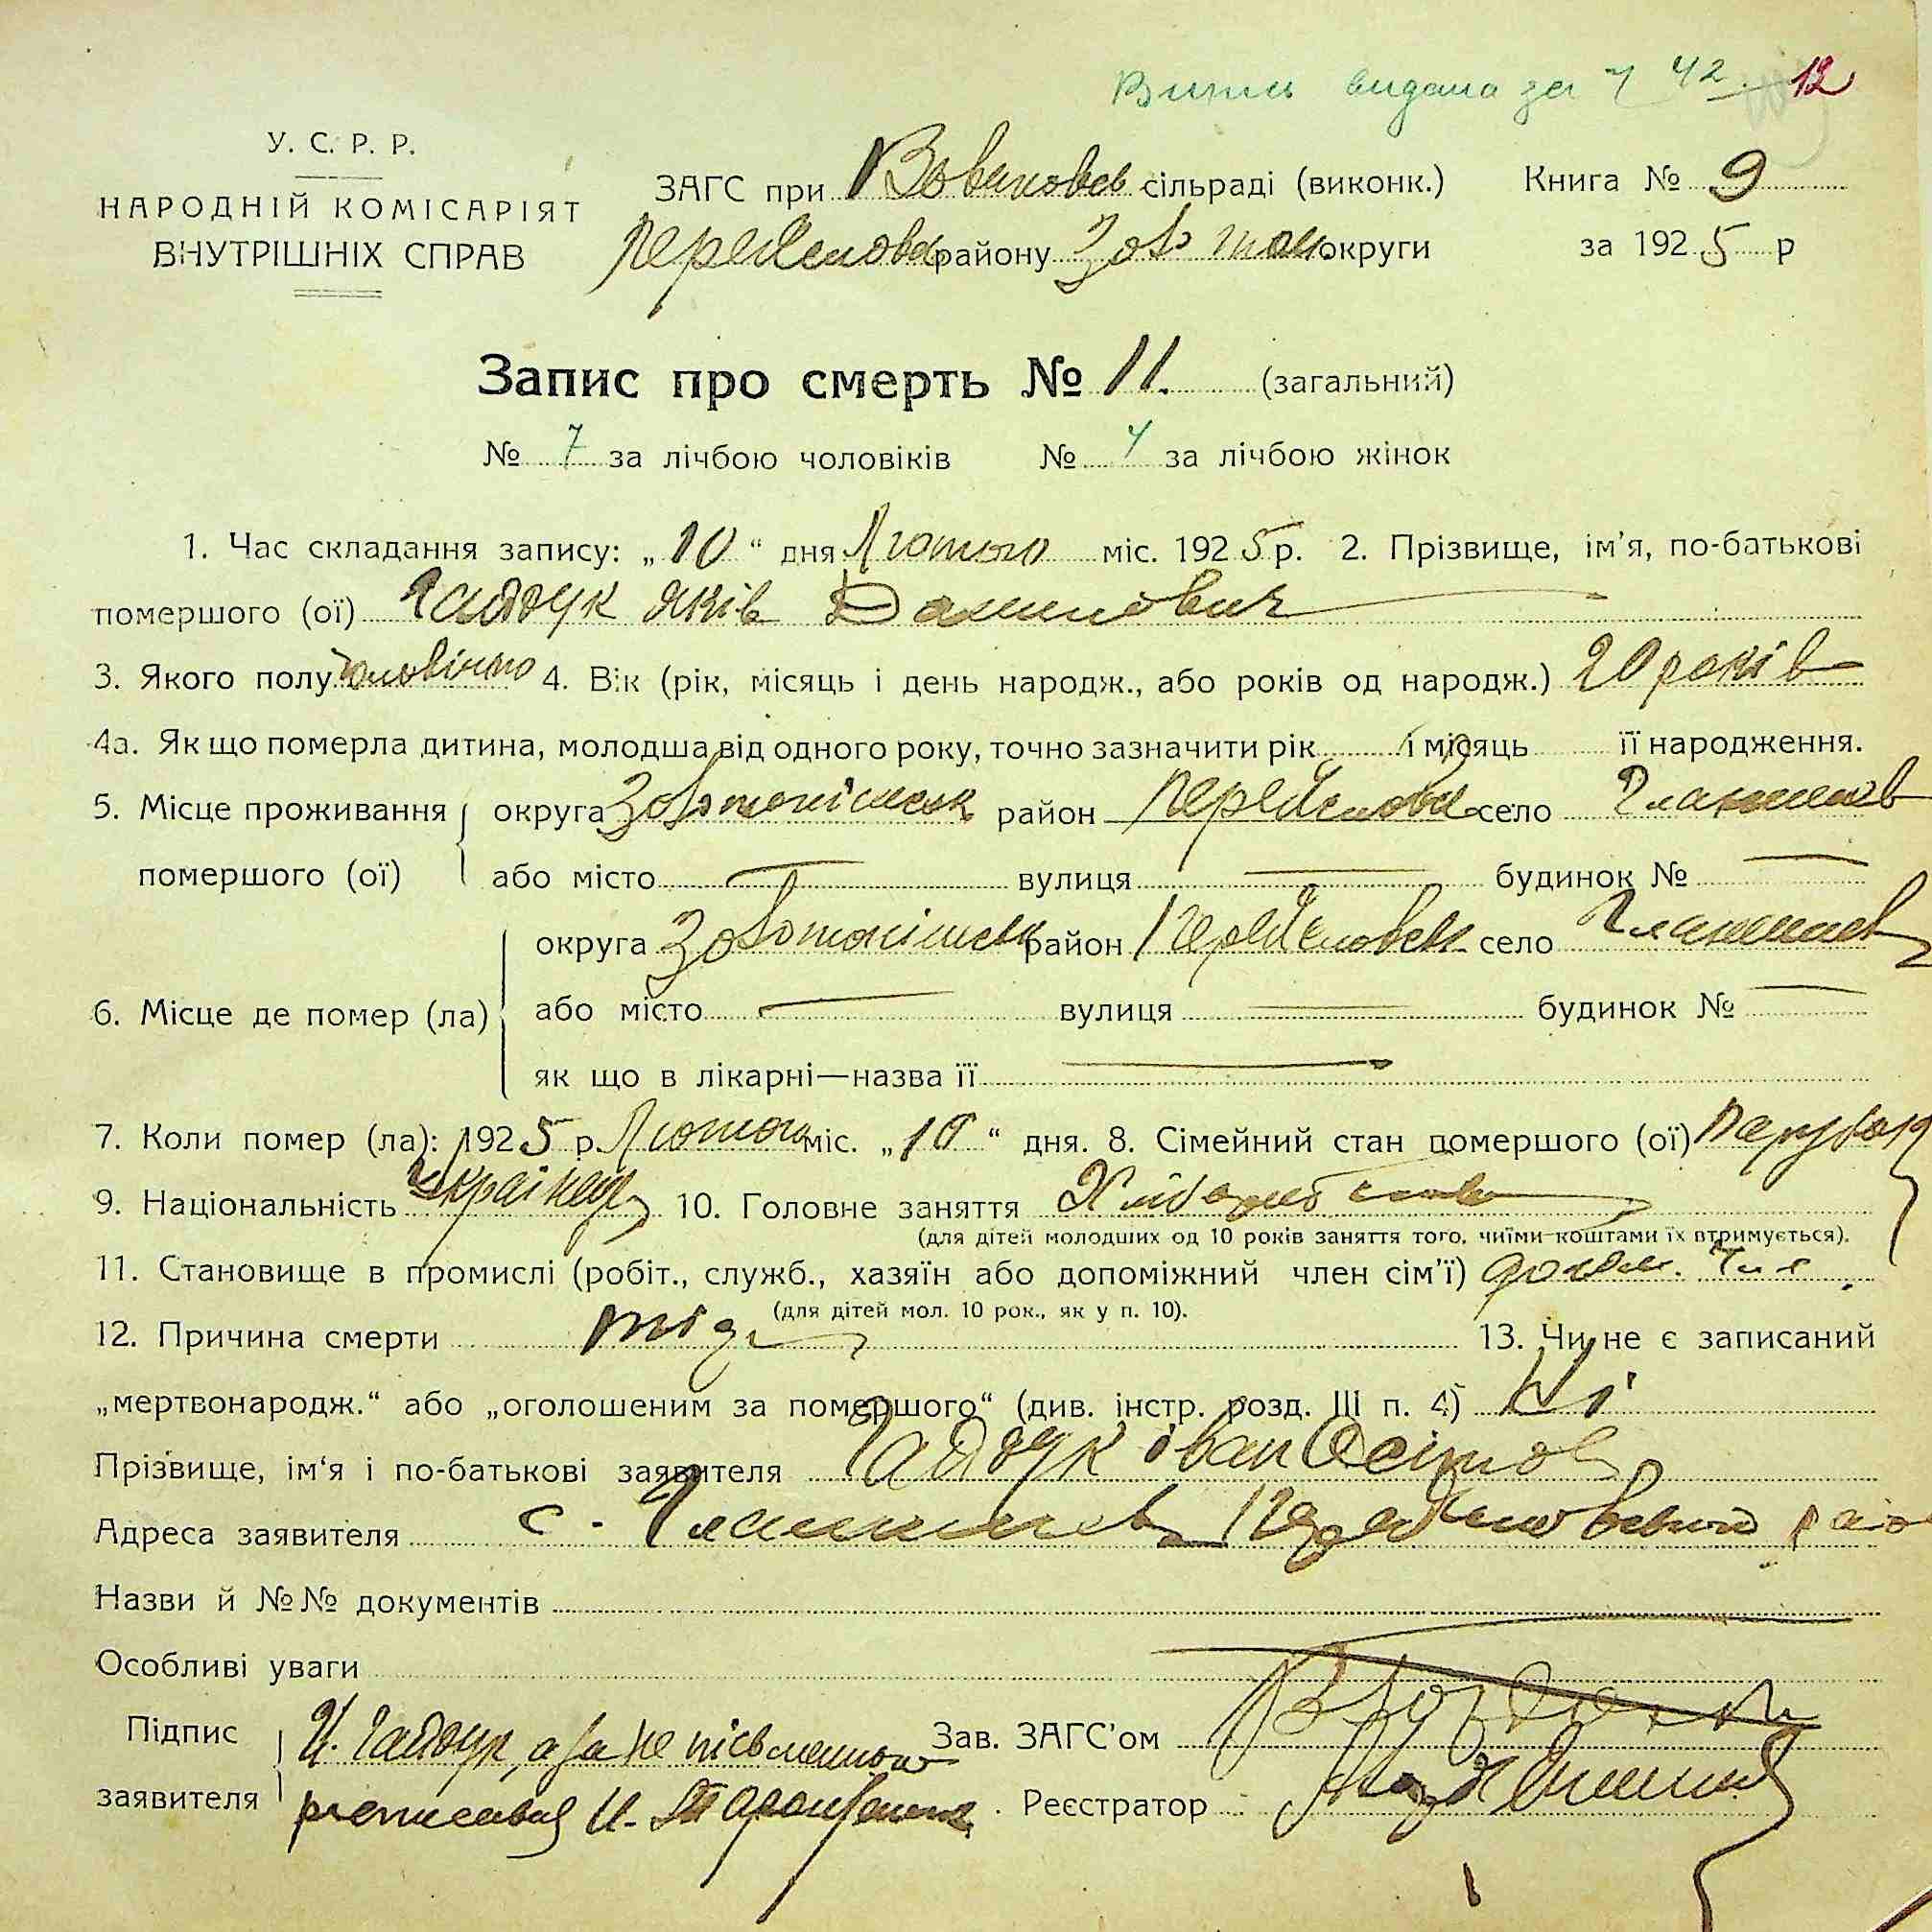 Випись видана за № 42 12
У. С. Р. Р.
НАРОДНІЙ КОМІСАРІЯТ
ВНУТРІШНІХ СПРАВ
ЗАГС при Вовчковсь сільраді (виконк.) Книга № 9
району Золотон. округи за 1925 р
Запис про смерть № 11. (загальний)
№ 7 за лічбою чоловіків № 4 за лічбою жінок
1. Час складання запису: „10“ дня Лютого міс. 1925 р. 2. Прізвище, ім'я, по-батькові
помершого (ої) Гайдук Яків Данилович
3. Якого полу чоловічого 4. Вік (рік, місяць і день народж., або років од народж.) 20 років
4а. Як що померла дитина, молодша від одного року, точно зазначити рік і місяць її народження.
5. Місце проживання округа Золотоніськ район село
помершого (ої) або місто — вулиця — будинок № —
округа Золотоніськ район село
6. Місце де помер (ла) або місто — вулиця — будинок № —
як що в лікарні—назва її —
7. Коли помер (ла): 1925 р. Лютого міс. „10“ дня. 8. Сімейний стан помершого (ої) парубок
9. Національність Українец 10. Головне заняття Хліборобство
(для дітей молодших од 10 років заняття того, чиїми коштами їх втримується).
11. Становище в промислі (робіт., служб., хазяїн або допоміжний член сім'ї)
(для дітей мол. 10 рок., як у п. 10).
12. Причина смерти 13. Чи не є записаний
„мертвонародж.“ або „оголошеним за помершого“ (див. інстр. розд. III п. 4) Ні
Прізвище, ім'я і по-батькові заявителя Гайдук Іван Осіпов
Адреса заявителя с.
Назви й №№ документів
Особливі уваги
Підпис И. Гайдук, а за не písьменного Зав. ЗАГС'ом
заявителя росписався И. Реєстратор